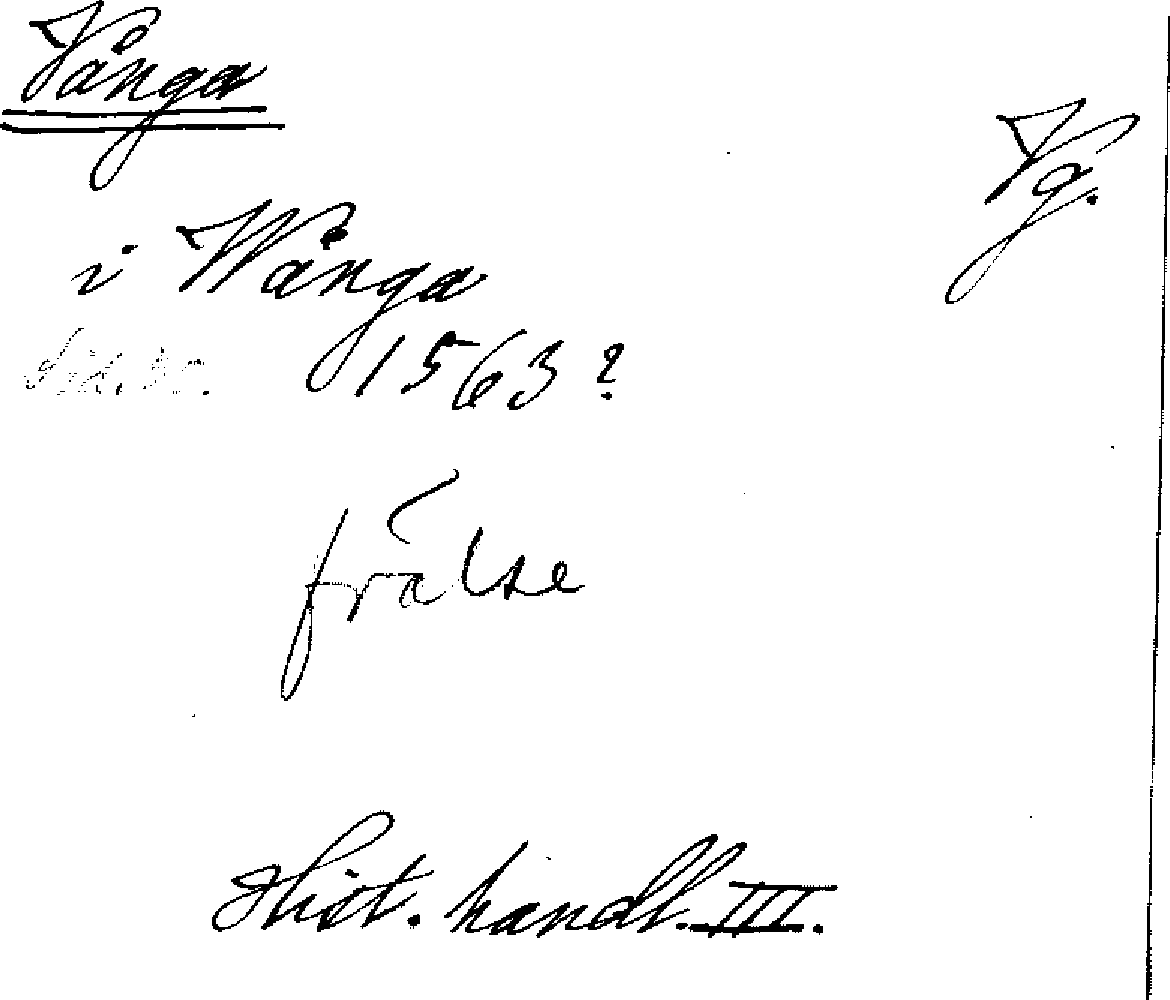 Vånga
Vg.
i Wånga
1563?
frälse
Hist. handl. III.